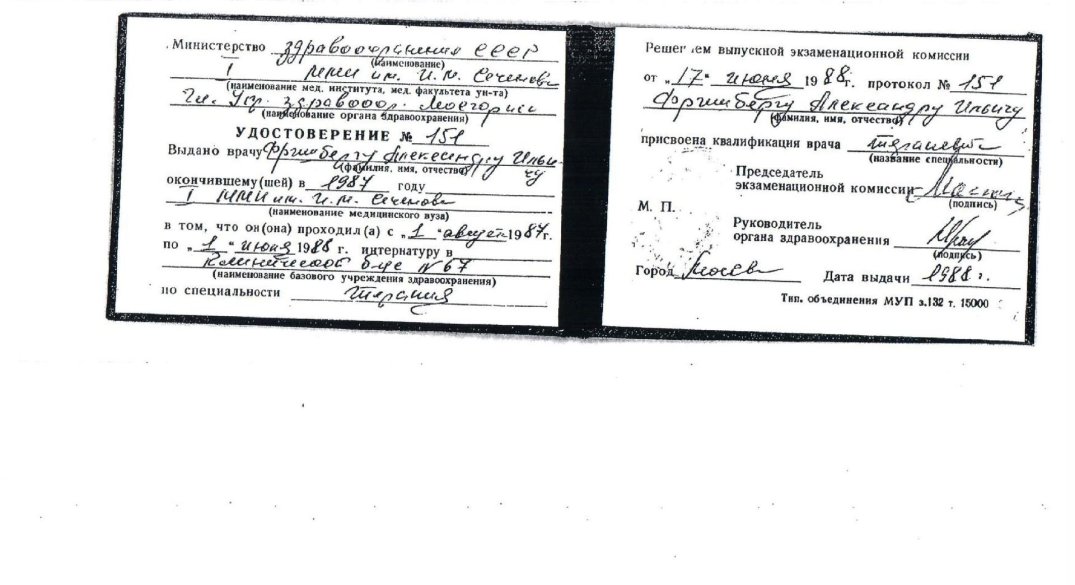 Министерство здравоохранения СССР
(наименование)
I ММИ им. И. М. Сеченова
(наименование мед. института, мед. факультета ун-та)
Гл. Упр. здравоохр. Мосгорис
(наименование органа здравоохранения)
УДОСТОВЕРЕНИЕ № 151
Выдано врачу Александру Ильичу
(фамилия, имя, отчество)
окончившему(шей) в 1987 году
I ММИ им. И. М. Сеченова
(наименование медицинского вуза)
в том, что он(она) проходил(а) с „1" август 1987г.
по „1" июня 1988 г. интернатуру в
Клинической б-це № 67
(наименование базового учреждения здравоохранения)
по специальности Терапия
Решен ем выпускной экзаменационной комиссии
от „17" июня 1988г. протокол № 151
Александру Ильичу
(фамилия, имя, отчество)
присвоена квалификация врача терапевта
(название специальности)
Председатель
экзаменационной комиссии
(подпись)
М. П.
Руководитель
органа здравоохранения
(подпись)
Город Москва Дата выдачи 1988 г.
Тип. объединения МУП з.132 т. 15000